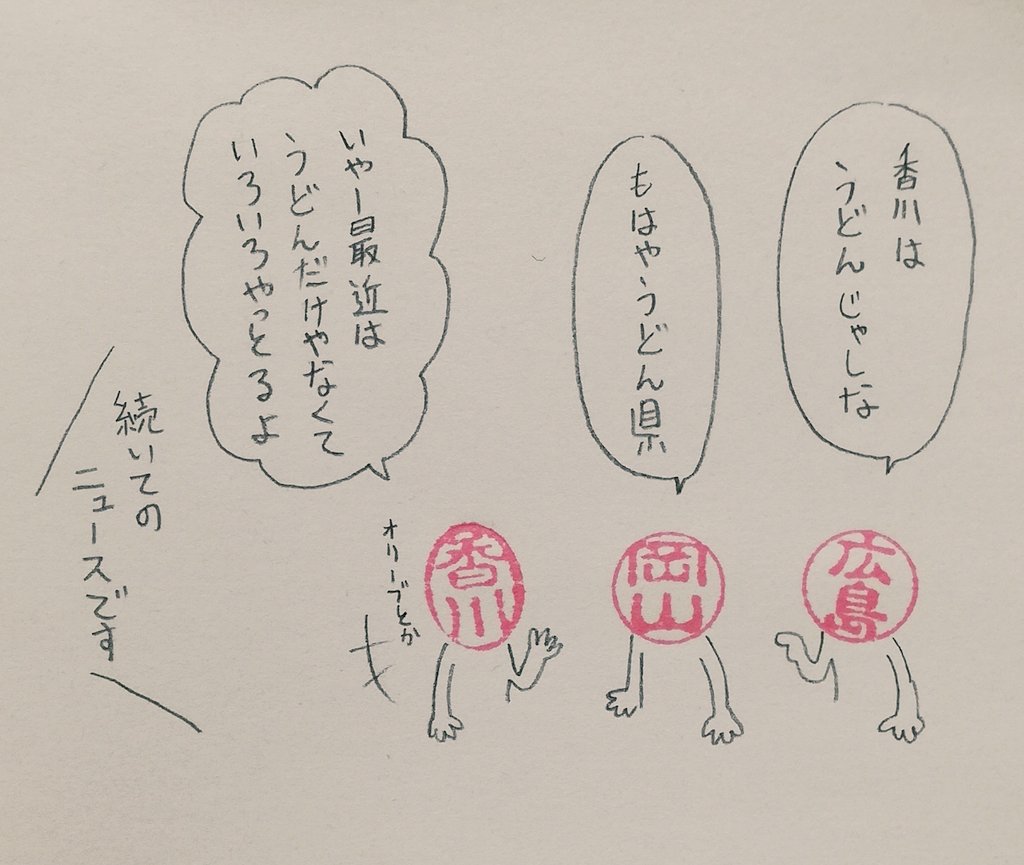 香川は
うどんじゃしな
もはやうどん県
いやー最近は
うどんだけやなくて
いろいろやっとるよ
オリーブとか
広島
岡山
香川
続いての
ニュースです